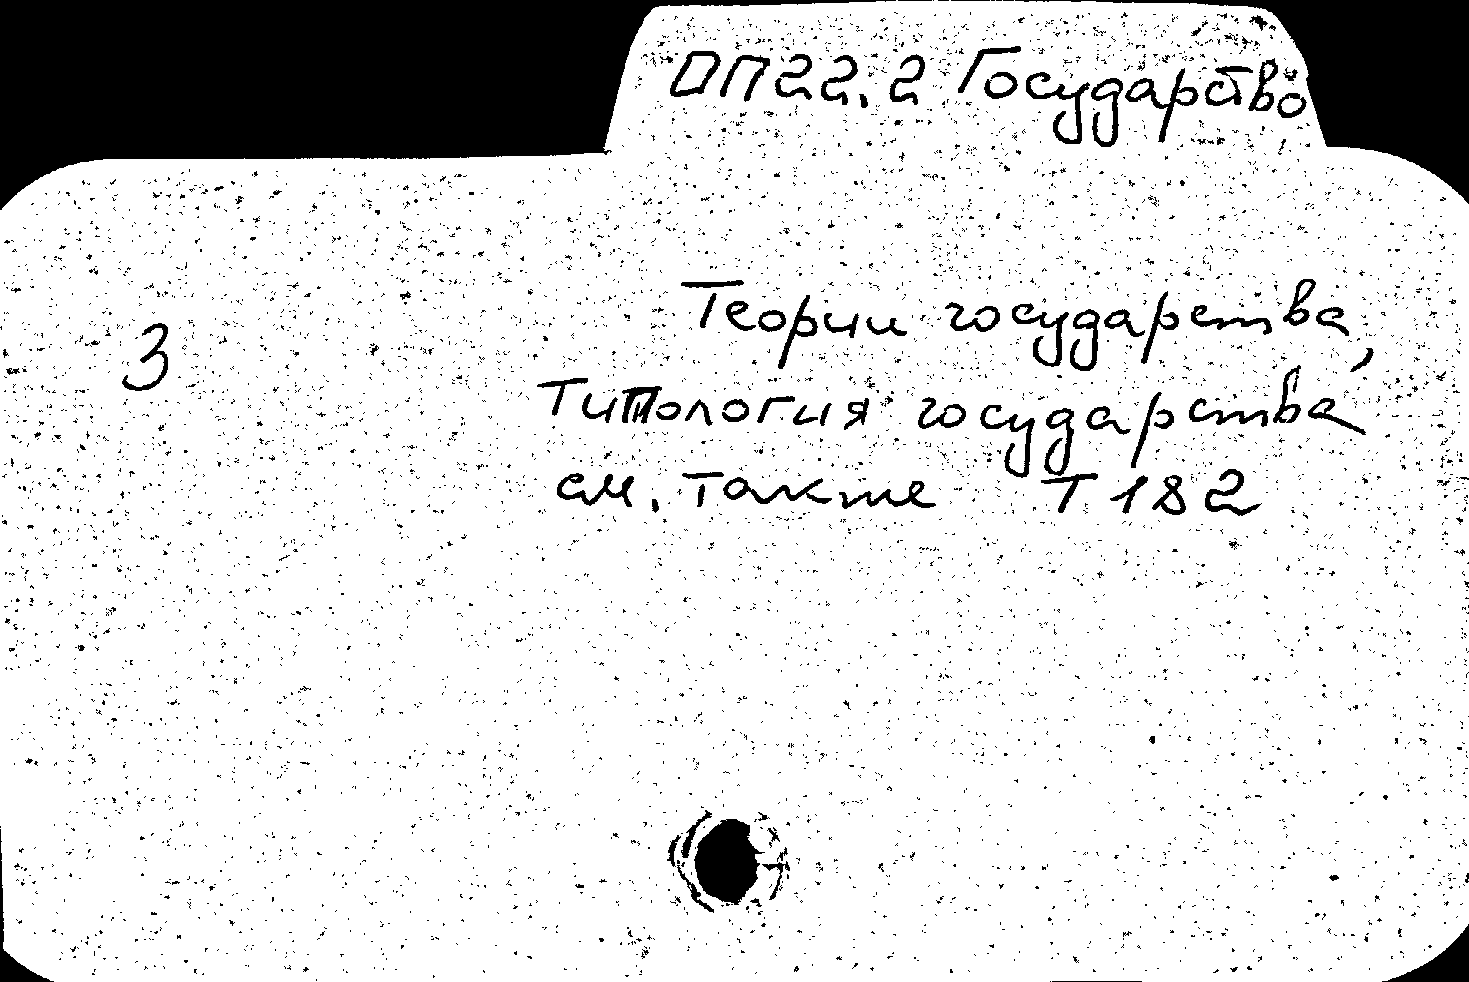 ОП22.2 Государство
Теории государства,
3
Типология государства
см. также Т 182